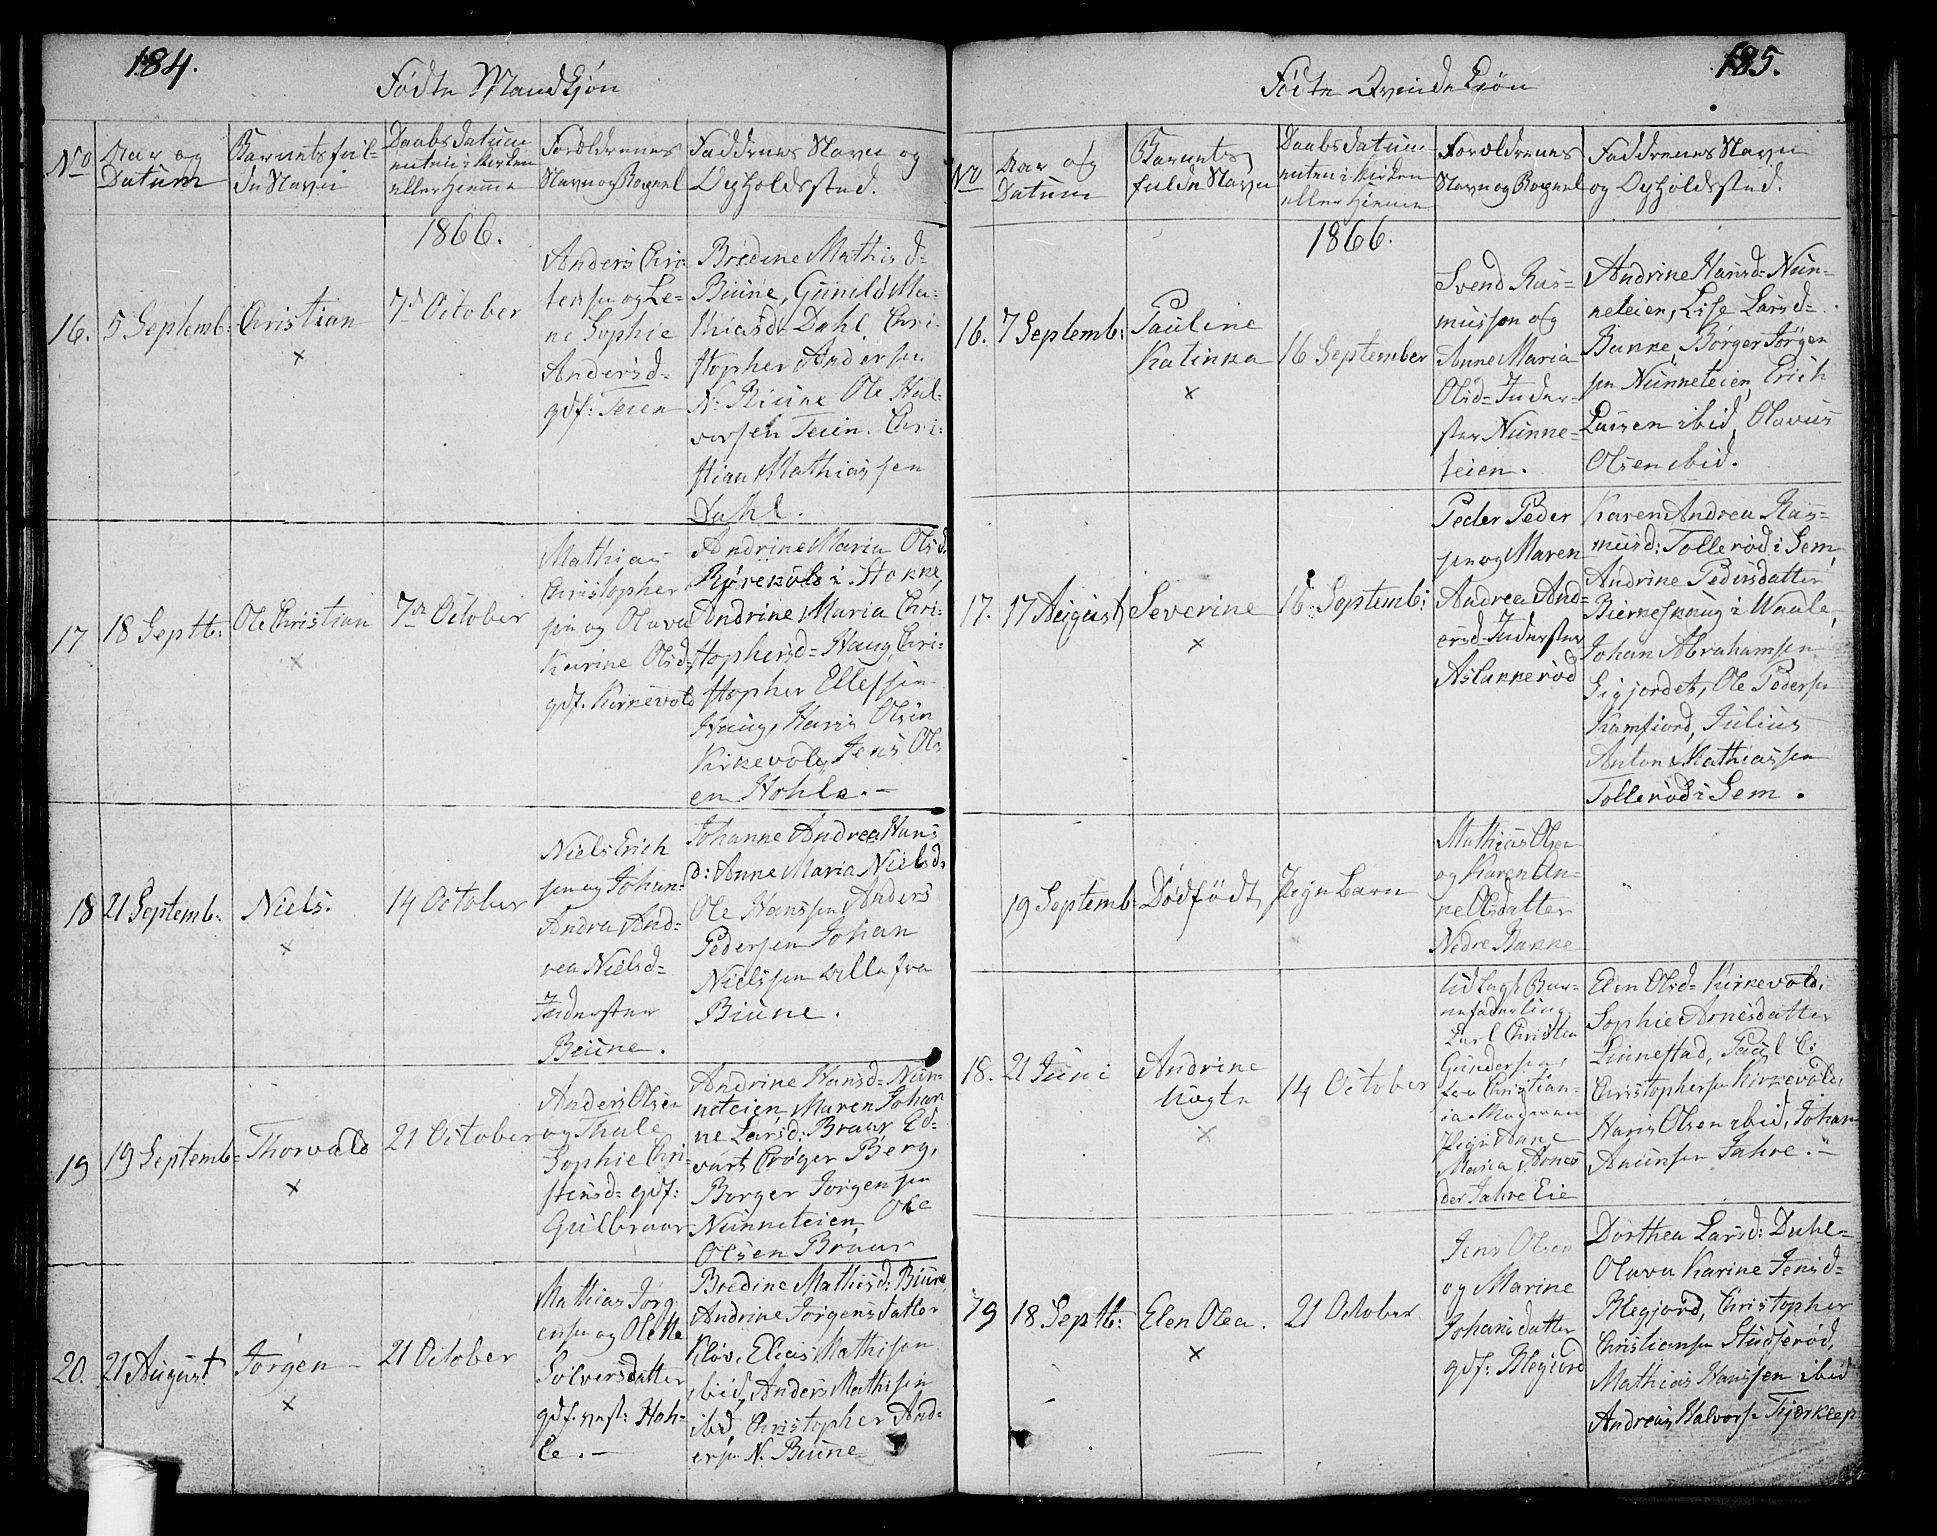 184.
Fødte Mandkjøn
No
Aar og
Datum
Barnets ful-
de Navn
Daabs Datum
enten i Kirken
eller Hiemme
Forældrenes
Navn og Bopæl
Faddrenes Navn og
Opholdssted.
1866.
16.
5 Septemb:
Christian
×
7de October
Anders Chri-
tensen og Le-
ne Sophie
Andersd-
gdf: Teien
Bredine Mathisd-
Biune, Gunild Ma-
thiasd. Dahl Chri-
stopher Andersen
N. Biune Ole Hal-
vorsen Teien. Chri-
stian Mathiassen
Dahl.
17
18 Septb:
Ole Christian
×
7de October
Mathias
Christopher
sen og Olava
Karine Olsd-
gdf. Kirkevold
Andrine Maria Olsd.
Rørekold i Stokke,
Andrine Maria Chri-
stophersd- Haug, Chri-
stopher Ellefsen
Haug, Hans Olsen
Kirkevold, Jens Ols
en Hohle. -
18
21 Septemb:
Niels.
×
14 October
Niels Erich
sen og Johan-
Andra And-
rea Nielsd-
Inderster
Biune.
Johanne Andrea Hans
d: Anne Maria Nielsd-
Ole Hanssen Anders
Pedersen Johan
Nielssen alle fra
Biune.
19
19 Septemb-
Thorvald
×
21 October
Anders Olsen
og Thale
Sophie Chri-
stensd- gdf:
Gulbraar
Andrine Hansd- Nun-
neteien Maren Johan
ne Larsd: Braar Ed-
vart Crøger Berg,
Borger Jorgensen
Nunneteien, Ole
Olsen Braar
20.
21 August
Jørgen -
×
21 October
Mathias Jørg
ensen og Olette
Solversdatter
gdf. vest: Hoh-
le. -
Bredine Mathisd: Biune,
Andrine Jørgensdatter
Kløv, Elias Mathisen
ibid, Anders Mathisen
ibid, Christopher And-
ersen N. Biune-
185.
Fødte Qvindekjøn
No
Aar og
Datum
Barnets
fulde Navn
Daabs Datum
enten i Kirken
eller Hiemme
Forældrenes
Navn og Bopæl
Faddrenes Navn
og Opholdssted.
1866.
16.
7 Septemb:
Pauline
Katinka
×
16 September
Svend Ras-
mussen og
Anne Maria
Olsd- Inder-
ster Nunne-
teien.
Andrine Hansd- Nun-
neteien, Lise Larsd-
Bakke, Børger Jörgen
sen Nunneteien, Erich
Larsen ibid, Olavus
Olsen ibid.
17.
17 August
Severine
×
16 Septemb:
Peder Peder
sen og Maren
Andrea And-
ersd- Inderster
Aslakkerød
Karen Andrea Ras-
musd: Tollerød i Sem,
Andrine Pedersdatter
Bierkeskaug i Waale,
Johan Abrahamsen
Sigjordet, Ole Pedersen
Kamfiord, Julius
Anton Mathiassen
Tollerød i Sem.
19 Septemb-
Dødfödt
Pige Barn
Mathias Olsen
og Karen An-
ne Olsdatter
Nedre Bakke
"
18.
21 Juni
Andrine
Uægte
×
14 October
Udlagt Bar-
nefader Ung.
Carl Christen
Gundersen,
fra Christian-
ia. Moderen
Pige Anne
Maria Arnes
der Jahre Eie
Elen Olsd- Kirkevold,
Sophie Arnesdatter
Linnestad, Paul C.
Christophersen Kirkevold,
Hans Olsen ibid, Johan
Anunsen Jahre. -
19
18 Septb:
Elen Olea.
×
21 October
Jens Olsen
og Marine
Johansdatter
gdf: Blegiord
Dorthea Larsd: Dahl-
Olava Karine Jensd-
Blegjord, Christopher
Christiansen Studserød,
Mathias Hanssen ibid
Andreas Halvorsen Fjærklep